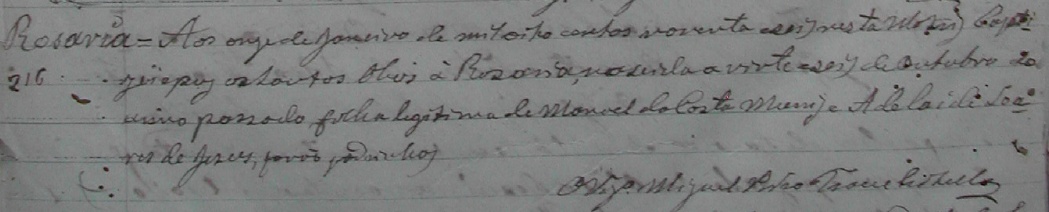 Rosaria = Aos onze de Janeiro de mil oito centos noventa e seis nesta Matriz bapti-
216 zei e puz os Santos Oleos à Rosaria, nascida a vinte e seis de Outubro do
anno passado filha legitima de Manoel da Costa Muniz e Adelaide Soa-
res de Jesus, forão padrinhos
O Vigr.º Miguel